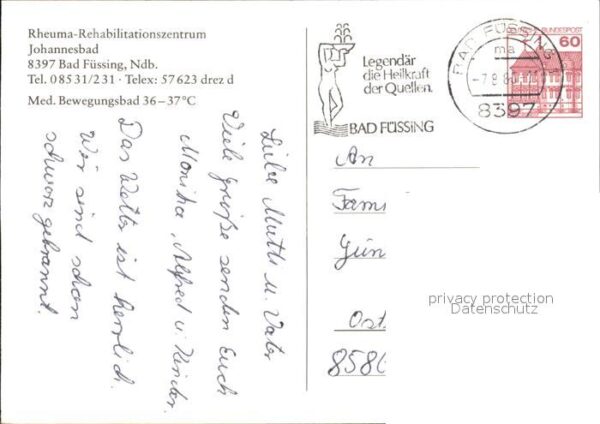 Rheuma-Rehabilitationszentrum
Johannesbad
8397 Bad Füssing, Ndb.
Tel. 08531/231 · Telex: 57623 drez d
Med. Bewegungsbad 36–37°C
Liebe Mutti u. Vater
Viele Grüße senden Euch
Monika, Alfred u. Kinder.
Das Wetter ist herrlich.
Wir sind schon
schwarz gebrannt.
Legendär
die Heilkraft
der Quellen.
BAD FÜSSING
BAD FÜSSING 1
ma
8397
BUNDESPOST
60
An
Fami
Gün
Ost
8586
privacy protection
Datenschutz